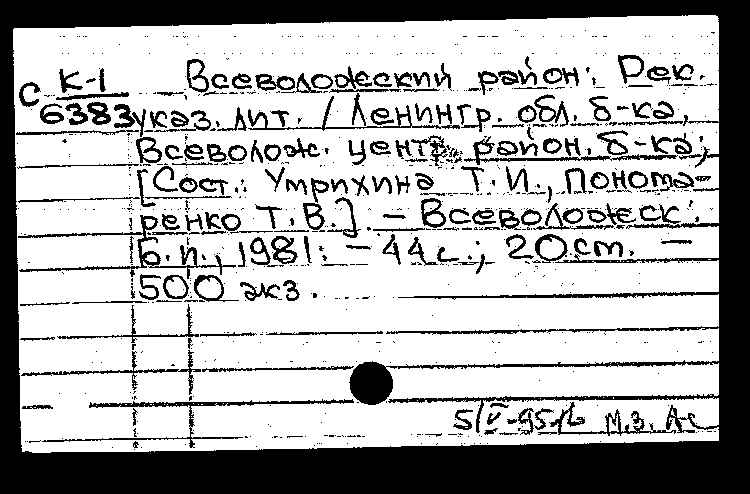 С К-1
6383
Всеволожский район: Рек.
указ. лит. / Ленингр. обл. б-ка,
Всеволож. центр. район. б-ка;
[Сост.: Умрихина Т.И., Понома-
ренко Т.В.]. – Всеволожск:
Б.и., 1981. – 44 с.; 20 см. –
500 экз.
5/V-95 М.З.